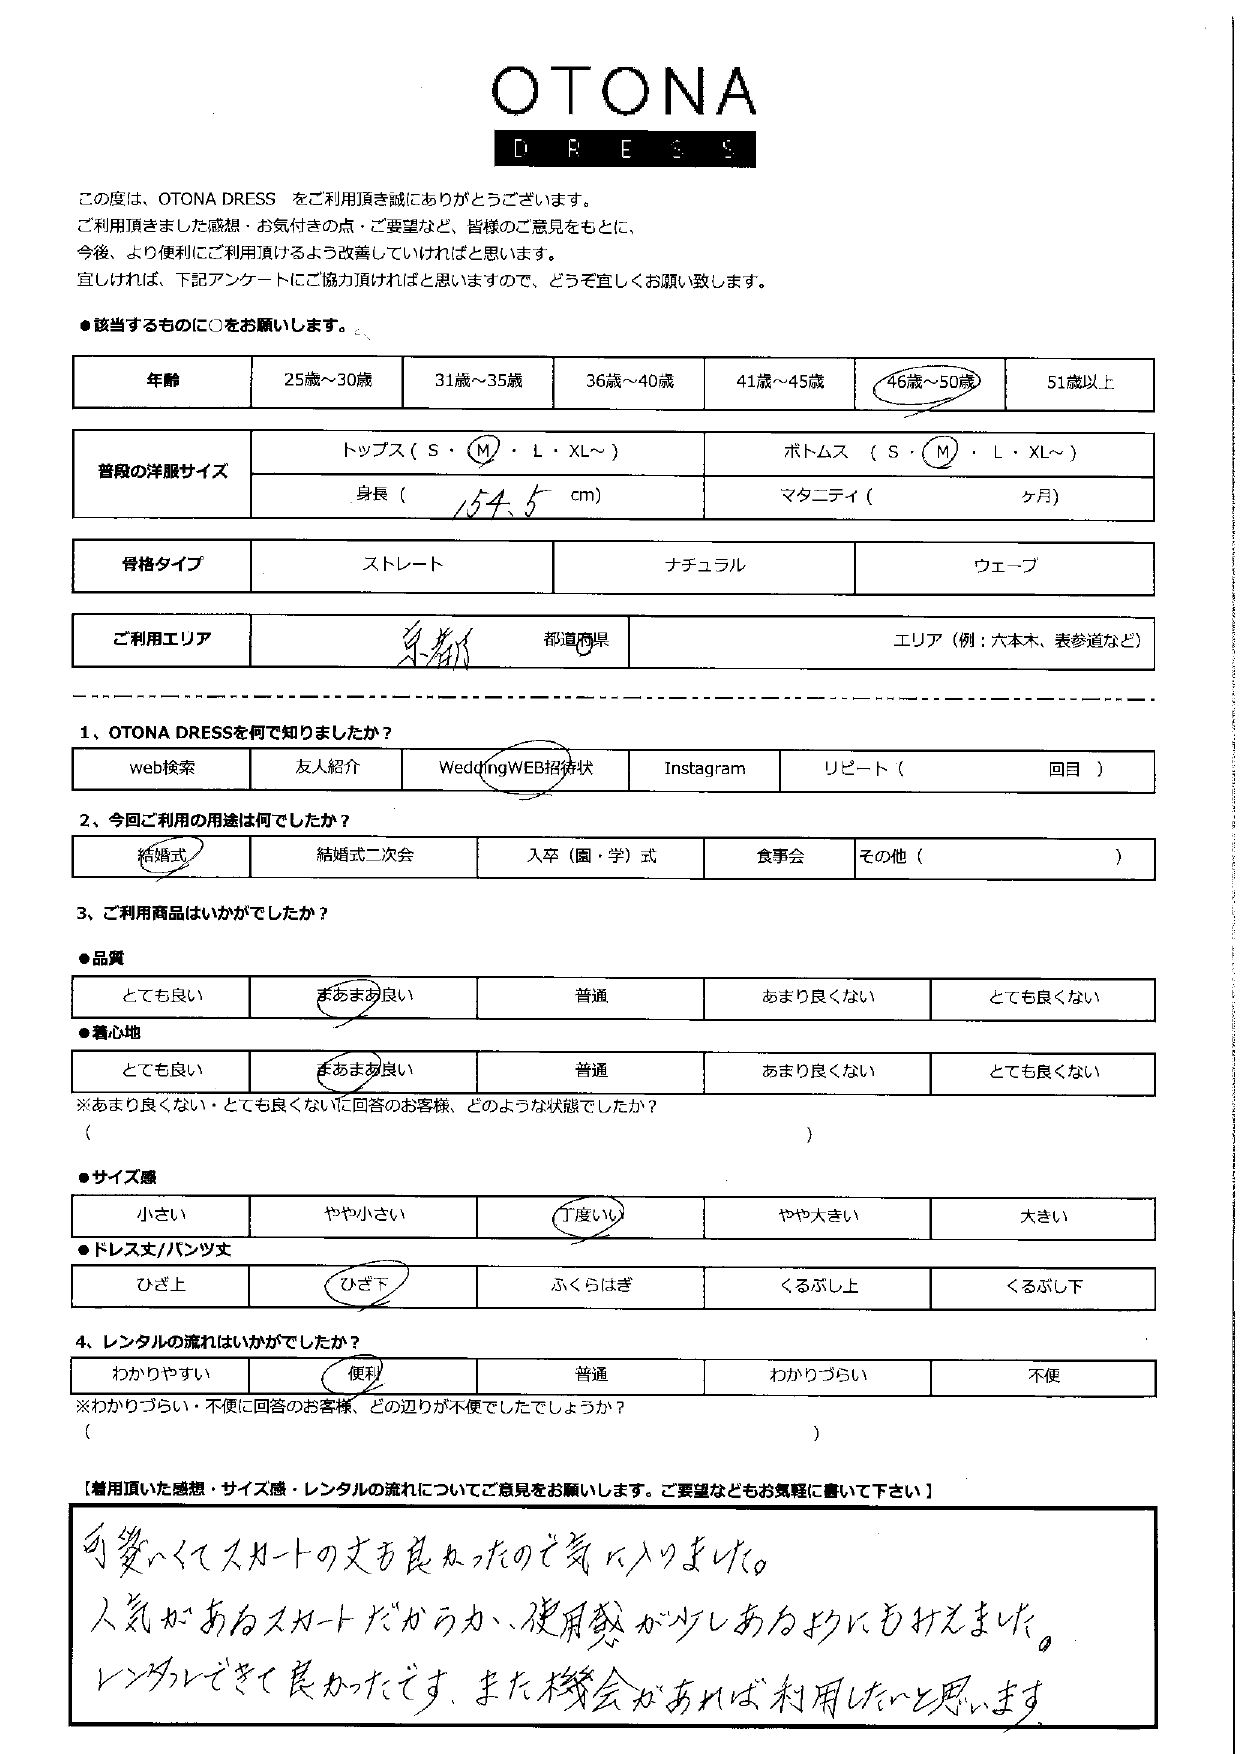 OTONA
DRESS
この度は、OTONA DRESS　をご利用頂き誠にありがとうございます。
ご利用頂きました感想・お気付きの点・ご要望など、皆様のご意見をもとに、
今後、より便利にご利用頂けるよう改善していければと思います。
宜しければ、下記アンケートにご協力頂ければと思いますので、どうぞ宜しくお願い致します。
●該当するものに○をお願いします。
年齢 25歳～30歳 31歳～35歳 36歳～40歳 41歳～45歳 46歳～50歳 51歳以上
普段の洋服サイズ トップス ( S ・ M ・ L ・ XL～ ) ボトムス ( S ・ M ・ L ・ XL～ )
身長 ( 154.5 cm) マタニティ ( ケ月)
骨格タイプ ストレート ナチュラル ウェーブ
ご利用エリア 京都府 都道府県 エリア（例：六本木、表参道など）
1、OTONA DRESSを何で知りましたか？
web検索 友人紹介 WeddingWEB招待状 Instagram リピート ( 回目 )
2、今回ご利用の用途は何でしたか？
結婚式 結婚式二次会 入卒（園・学）式 食事会 その他 ( )
3、ご利用商品はいかがでしたか？
●品質
とても良い まあまあ良い 普通 あまり良くない とても良くない
●着心地
とても良い まあまあ良い 普通 あまり良くない とても良くない
※あまり良くない・とても良くないに回答のお客様、どのような状態でしたか？
( )
●サイズ感
小さい やや小さい 丁度いい やや大きい 大きい
●ドレス丈/パンツ丈
ひざ上 ひざ下 ふくらはぎ くるぶし上 くるぶし下
4、レンタルの流れはいかがでしたか？
わかりやすい 便利 普通 わかりづらい 不便
※わかりづらい・不便に回答のお客様、どの辺りが不便でしたでしょうか？
( )
【着用頂いた感想・サイズ感・レンタルの流れについてご意見をお願いします。ご要望などもお気軽に書いて下さい】
可愛いくてスカートの丈も良かったので気に入りました。
人気があるスカートだからか、使用感が少しあるようにもみえました。
レンタルできて良かったです。また機会があれば利用したいと思います